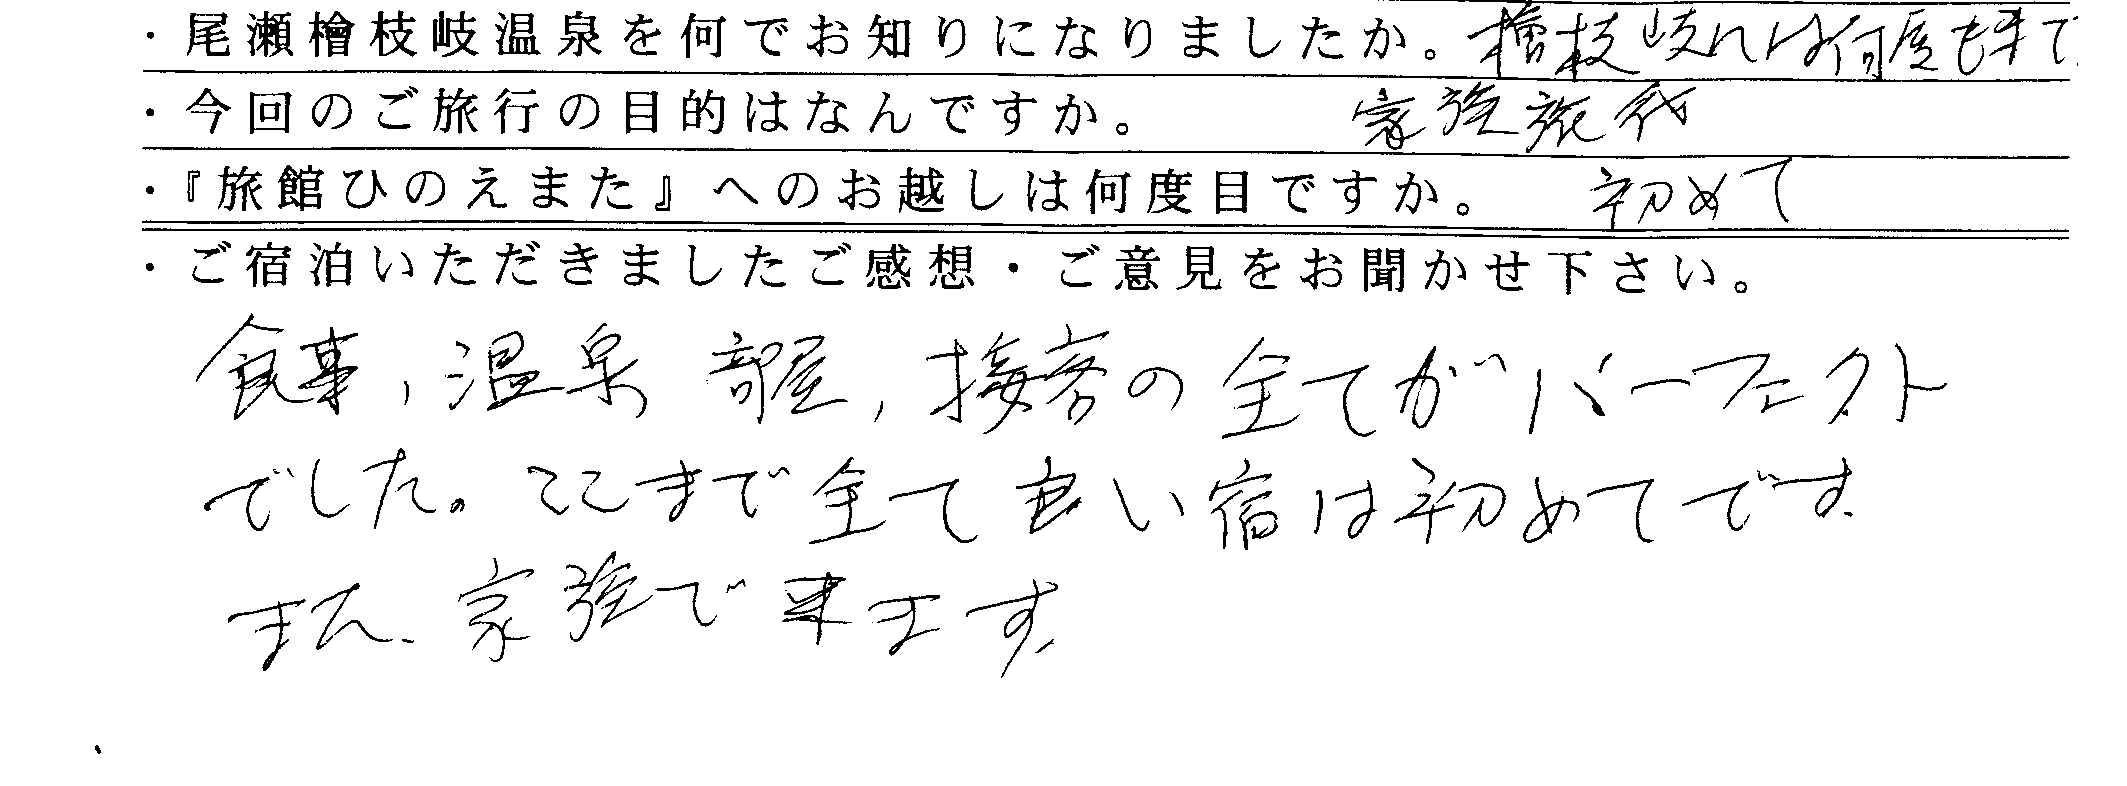 ・尾瀬檜枝岐温泉を何でお知りになりましたか。檜枝岐には何度も来て
・今回のご旅行の目的はなんですか。 家族旅行
・『旅館ひのえまた』へのお越しは何度目ですか。 初めて
・ご宿泊いただきましたご感想・ご意見をお聞かせ下さい。
食事、温泉 部屋、接客の全てがパーフェクト
でした。ここまで全て良い宿は初めてです.
また、家族で来ます.